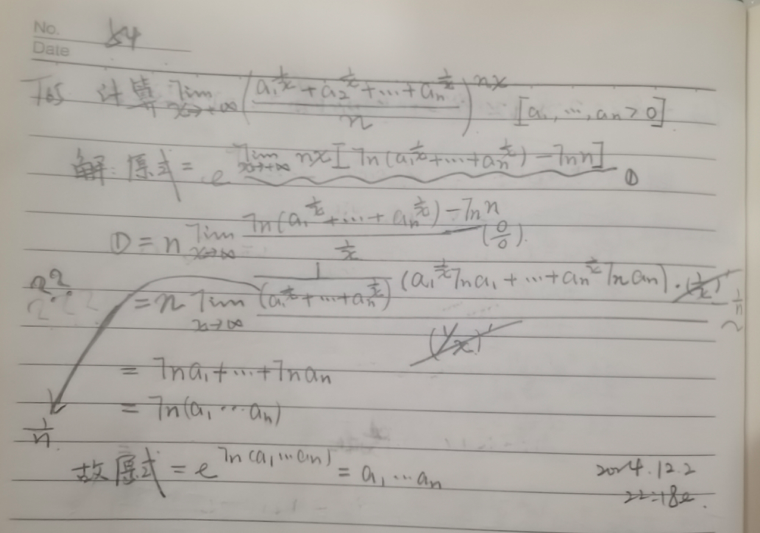 No. 54
Date
T65 计算 lim x→+∞ ((a₁^(1/x) + a₂^(1/x) + ⋯ + aₙ^(1/x))/n)^(nx) [a₁, ⋯, aₙ > 0]
解: 原式 = e^(lim x→+∞ nx[ln(a₁^(1/x) + ⋯ + aₙ^(1/x)) − ln n]) ①
① = n lim x→∞ (ln(a₁^(1/x) + ⋯ + aₙ^(1/x)) − ln n)/(1/x) (0/0)
= n lim x→∞ (1/(a₁^(1/x) + ⋯ + aₙ^(1/x)) (a₁^(1/x) ln a₁ + ⋯ + aₙ^(1/x) ln aₙ) · (1/x)')/(1/x)'
= ln a₁ + ⋯ + ln aₙ
= ln(a₁ ⋯ aₙ)
1/n
故原式 = e^(ln(a₁ ⋯ aₙ)) = a₁ ⋯ aₙ
2024.12.2
22:18